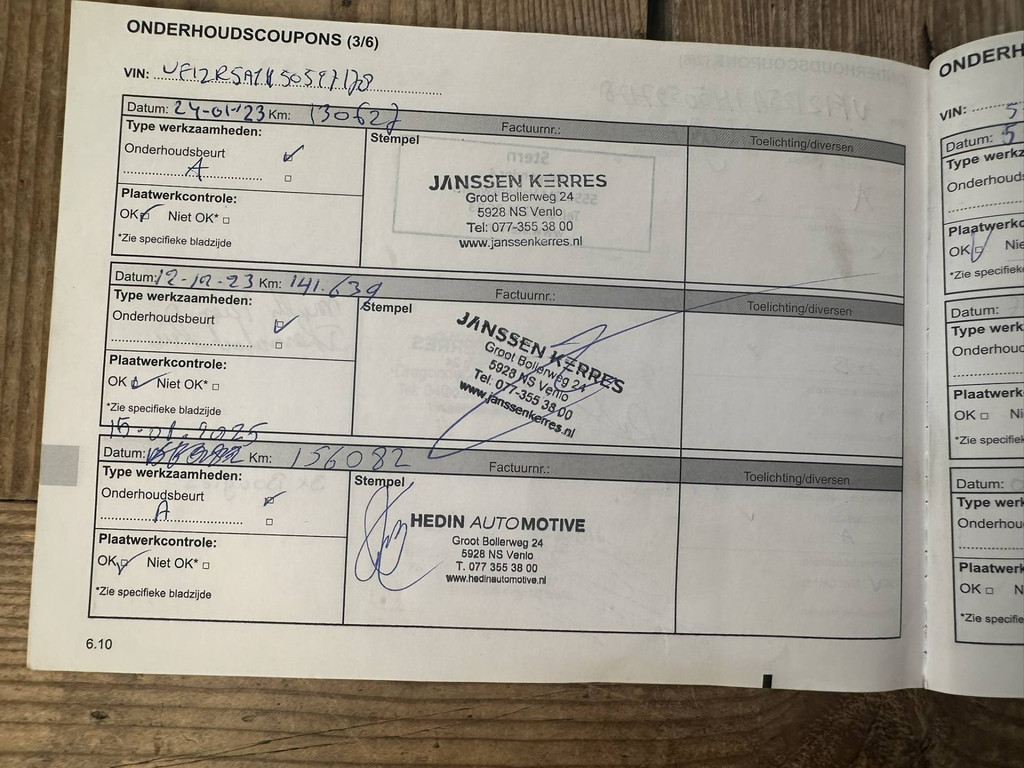 ONDERHOUDSCOUPONS (3/6)
VIN:
Datum: 24-01-'23 Km: 130627
Factuurnr.:
Toelichting/diversen
Type werkzaamheden:
Onderhoudsbeurt
A
Plaatwerkcontrole:
OK Niet OK*
*Zie specifieke bladzijde
Stempel
JANSSEN KERRES
Groot Bollerweg 24
5928 NS Venlo
Tel: 077-355 38 00
www.janssenkerres.nl
Datum: 12-12-23 Km: 141.639
Factuurnr.:
Toelichting/diversen
Type werkzaamheden:
Onderhoudsbeurt
Plaatwerkcontrole:
OK Niet OK*
*Zie specifieke bladzijde
Stempel
JANSSEN KERRES
Groot Bollerweg 24
5928 NS Venlo
Tel: 077-355 38 00
www.janssenkerres.nl
15-01-2025
Datum: Km: 156082
Factuurnr.:
Toelichting/diversen
Type werkzaamheden:
Onderhoudsbeurt
A
Plaatwerkcontrole:
OK Niet OK*
*Zie specifieke bladzijde
Stempel
HEDIN AUTOMOTIVE
Groot Bollerweg 24
5928 NS Venlo
T. 077 355 38 00
www.hedinautomotive.nl
6.10
ONDERH
VIN:
Datum: 5
Type werkz
Onderhouds
Plaatwerkc
OK Nie
*Zie specifieke
Datum:
Type werk
Onderhoud
Plaatwerk
OK N
*Zie specifiek
Datum:
Type werk
Onderhoud
Plaatwerk
OK N
*Zie specifiek